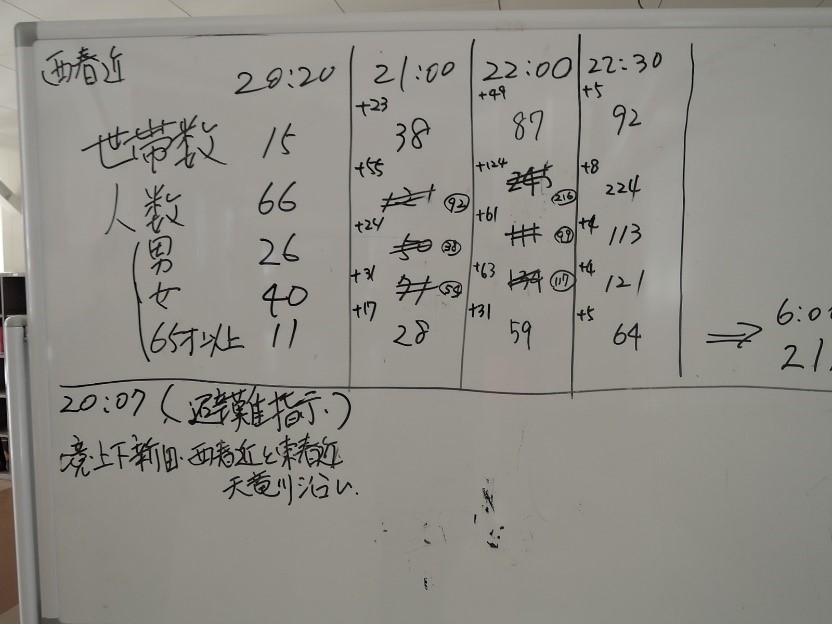 西春近 20:20 21:00 22:00 22:30
+23 +49 +5
世帯数 15 38 87 92
+55 +124 +8
人数 66 121 92 245 216 224
+24 +61 +4
男 26 50 38 111 99 113
+31 +63 +4
女 40 71 54 134 117 121
+17 +31 +5
65才以上 11 28 59 64
⇒ 6:0
21
20:07(避難指示)
境・上下新田・西春近と東春近
天竜川沿い.